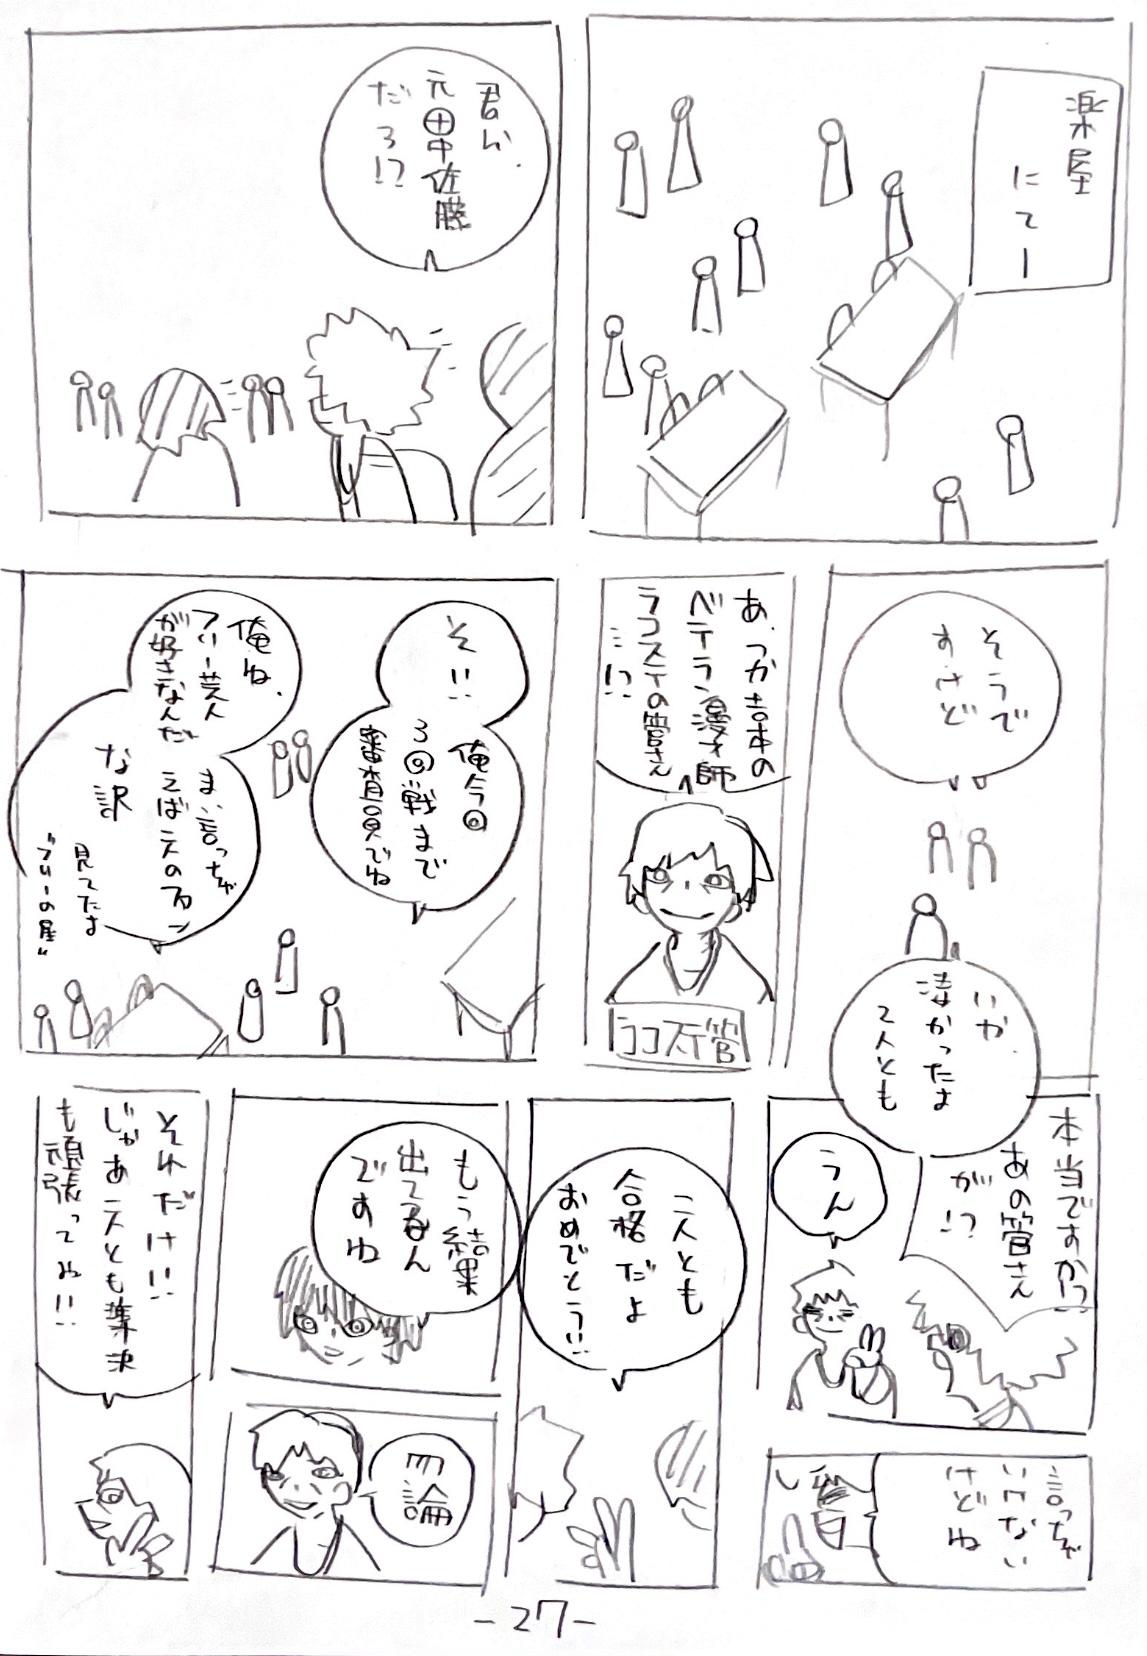 楽屋
にてー
君ら、
元田中佐藤
だろ!?
そうで
すけど
いや、
凄かったよ
2人とも
あ、つか吉本の
ベテラン漫才師
ラコステの管さん
…!?
ラコステ管
そ!!
俺今回
3回戦まで
審査員でね
俺ね、
フリー芸人
が好きなんだ
まぁ言っちゃ
えば2人のファン
な訳
見てたよ
"フリーの星"
本当ですかっ!!
あの管さん
が!?
うん
言っちゃ
いけない
けどね
二人とも
合格だよ
おめでとう!!
もう結果
出てるん
ですね
勿論
それだけ!!
じゃあ二人とも準決
も頑張ってね!!
-27-